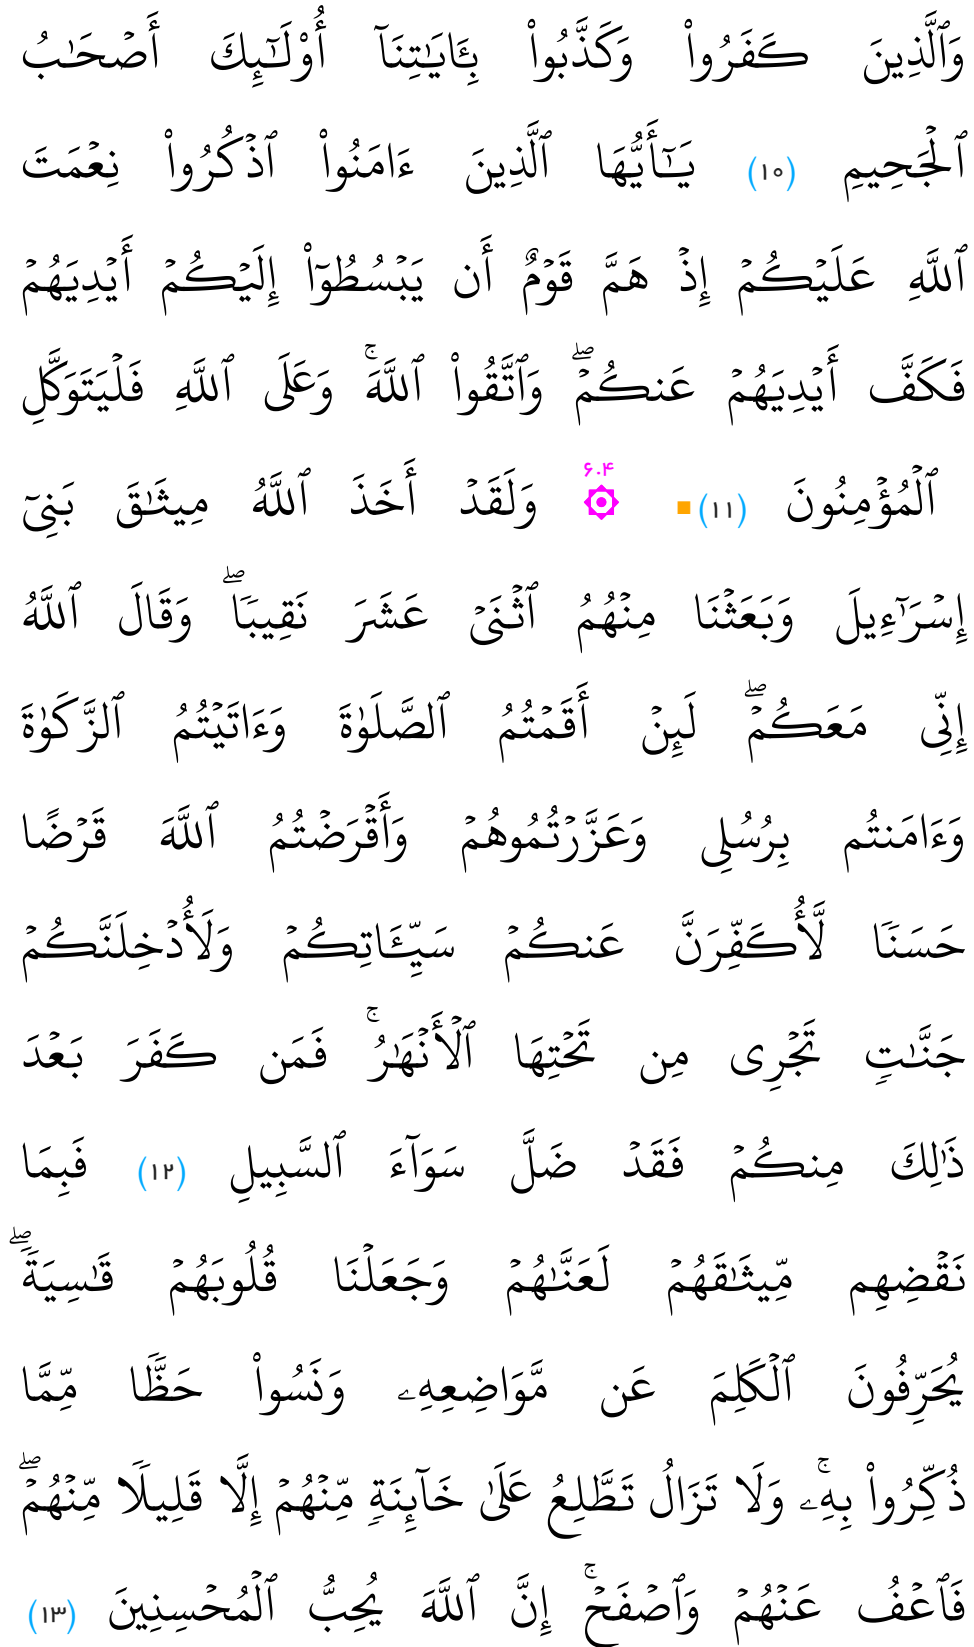 وَٱلَّذِينَ كَفَرُوا۟ وَكَذَّبُوا۟ بِـَٔايَـٰتِنَآ أُو۟لَـٰٓئِكَ أَصْحَـٰبُ
ٱلْجَحِيمِ (١٠) يَـٰٓأَيُّهَا ٱلَّذِينَ ءَامَنُوا۟ ٱذْكُرُوا۟ نِعْمَتَ
ٱللَّهِ عَلَيْكُمْ إِذْ هَمَّ قَوْمٌ أَن يَبْسُطُوٓا۟ إِلَيْكُمْ أَيْدِيَهُمْ
فَكَفَّ أَيْدِيَهُمْ عَنكُمْ ۖ وَٱتَّقُوا۟ ٱللَّهَ ۚ وَعَلَى ٱللَّهِ فَلْيَتَوَكَّلِ
ٱلْمُؤْمِنُونَ (١١) ۞ ۶.۴ وَلَقَدْ أَخَذَ ٱللَّهُ مِيثَـٰقَ بَنِىٓ
إِسْرَٰٓءِيلَ وَبَعَثْنَا مِنْهُمُ ٱثْنَىْ عَشَرَ نَقِيبًا ۖ وَقَالَ ٱللَّهُ
إِنِّى مَعَكُمْ ۖ لَئِنْ أَقَمْتُمُ ٱلصَّلَوٰةَ وَءَاتَيْتُمُ ٱلزَّكَوٰةَ
وَءَامَنتُم بِرُسُلِى وَعَزَّرْتُمُوهُمْ وَأَقْرَضْتُمُ ٱللَّهَ قَرْضًا
حَسَنًا لَّأُكَفِّرَنَّ عَنكُمْ سَيِّـَٔاتِكُمْ وَلَأُدْخِلَنَّكُمْ
جَنَّـٰتٍ تَجْرِى مِن تَحْتِهَا ٱلْأَنْهَـٰرُ ۚ فَمَن كَفَرَ بَعْدَ
ذَٰلِكَ مِنكُمْ فَقَدْ ضَلَّ سَوَآءَ ٱلسَّبِيلِ (١٢) فَبِمَا
نَقْضِهِم مِّيثَـٰقَهُمْ لَعَنَّـٰهُمْ وَجَعَلْنَا قُلُوبَهُمْ قَـٰسِيَةً ۖ
يُحَرِّفُونَ ٱلْكَلِمَ عَن مَّوَاضِعِهِۦ وَنَسُوا۟ حَظًّا مِّمَّا
ذُكِّرُوا۟ بِهِۦ ۚ وَلَا تَزَالُ تَطَّلِعُ عَلَىٰ خَآئِنَةٍ مِّنْهُمْ إِلَّا قَلِيلًا مِّنْهُمْ ۖ
فَٱعْفُ عَنْهُمْ وَٱصْفَحْ ۚ إِنَّ ٱللَّهَ يُحِبُّ ٱلْمُحْسِنِينَ (١٣)